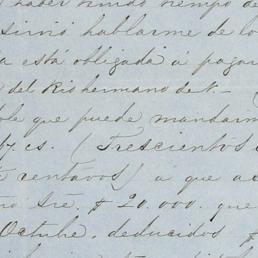 haber tenido tiempo de
sirvió hablarme de lo
a está obligada á pagar
del Rio hermano de V. –
ble que puede mandarm
67 cs. (Trescientos
centavos) á que a
Sre. $ 20.000. que
Octubre, deducidos $